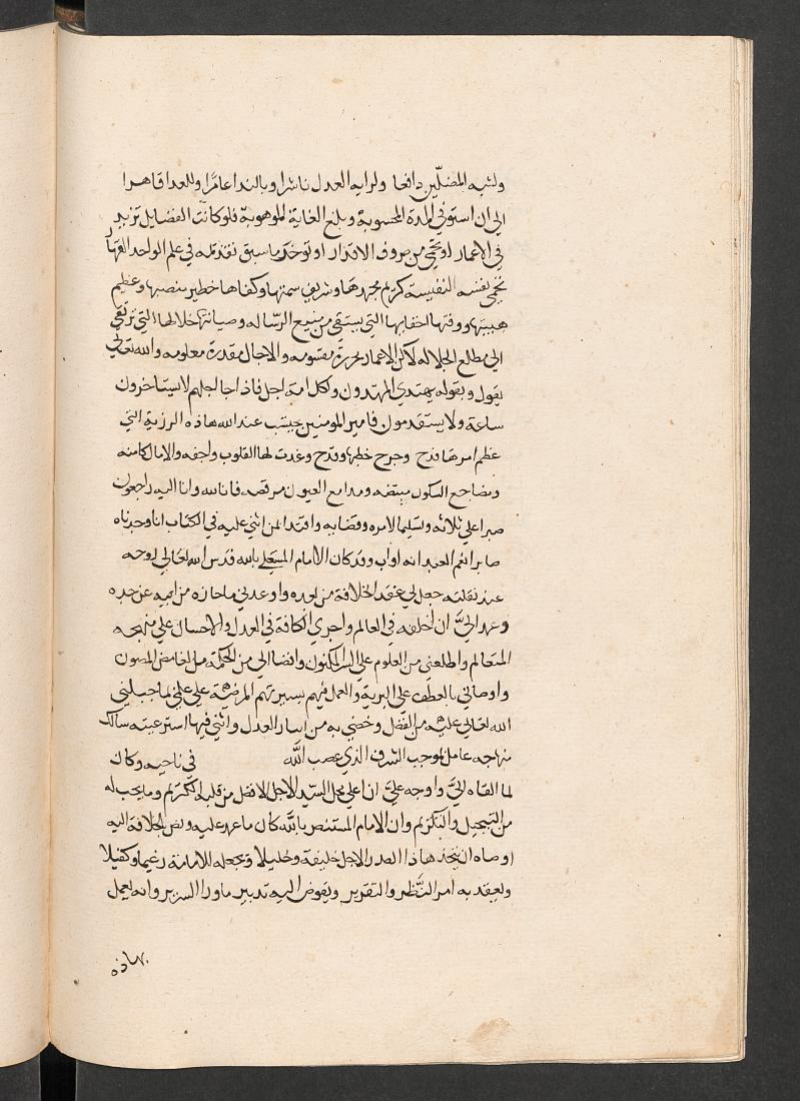 ولشبه المضلّين دافعا ولرايه العدل ناشرا وبالندا عامرا وللعدا قاهرا
الي ان استوفي المدة المحسوبة وبلغ الغاية الموهوبة فلو كانت الفضايل تزيد
في الاعمار او تحمي من صروف الاقدار او توخر ما سبق تقدمه في علم الواحد القهار
لحمي نفسه النفيسة كريم مجدها وشريف سمتها وكفاها خطير منصبها وعظيم
هيبتها ووقتها افعالها التي يستقي من منبع الرساله وصيانتها خلالها التي ترتقي
الي مطالع الجلاله لاكن الاعمار محررة مقسومه والاجال مقدرة معلومه والله تعالي
يقول وبقوله يهتدي المهتدون ولكل امة اجل فاذا جا اجلهم لا يستاخرون
ساعة ولا يستقدمون فامير المومنين يحتسب عند الله هاذه الرزية التي
عظم امرها فدح وجرح خطبها وقدح وغدت لها القلوب واجفه والامال كاسفه
ومضاجع السكون منقضه ومدامع العيون مرفضه فانا لله وانا اليه راجعون
صبرا علي بلائه وتسليما لامره وقضايه واقتدا بمن اثني عليه في الكتاب انا وجدناه
صابرا نعم العبد انه اواب وقد كان الامام المستعلي بالله قدس الله تعالي روحه
عند نقلته جعل لي عقد الخلافة من بعده واودعني ما حازه من ابيه عن جده
وعهد اليّ ان اخلفه في العالم واجري الكافة في العدل والاحسان علي منهجه
المتعالم واطلعني من العلوم علي السر المكنون وافضا الي من الحكمة بالغامض المصون
واوصاني بالعطف علي البرية والعمل فيهم بسيرتهم المرضية علي علمي بما جبلني
الله تعالي عليه من الفضل وخصني به من ايثار العدل وانني فيما استرعيته سالك
منهاجه عامل بموجب الشرف الذي عصب الله في ناحيه وكان
لما القاه اليّ واوجبه عليّ ان اعلي محل السيّد الاجل الافضل من قلبه الكريم وما يجب له
من التبجيل والتكريم وان الامام المستنصر بالله كان ما عهد عليه ونص الخلافة اليه
اوصاه ان يتخذ هاذا الصدر الاجل خليفة وخليلا ويجعله للامامة زعيما وكفيلا
ويعقد به امر النّظر والتقرير ويفوض اليه تدبير ما ورا السرير وانه لعمل
بهاذه